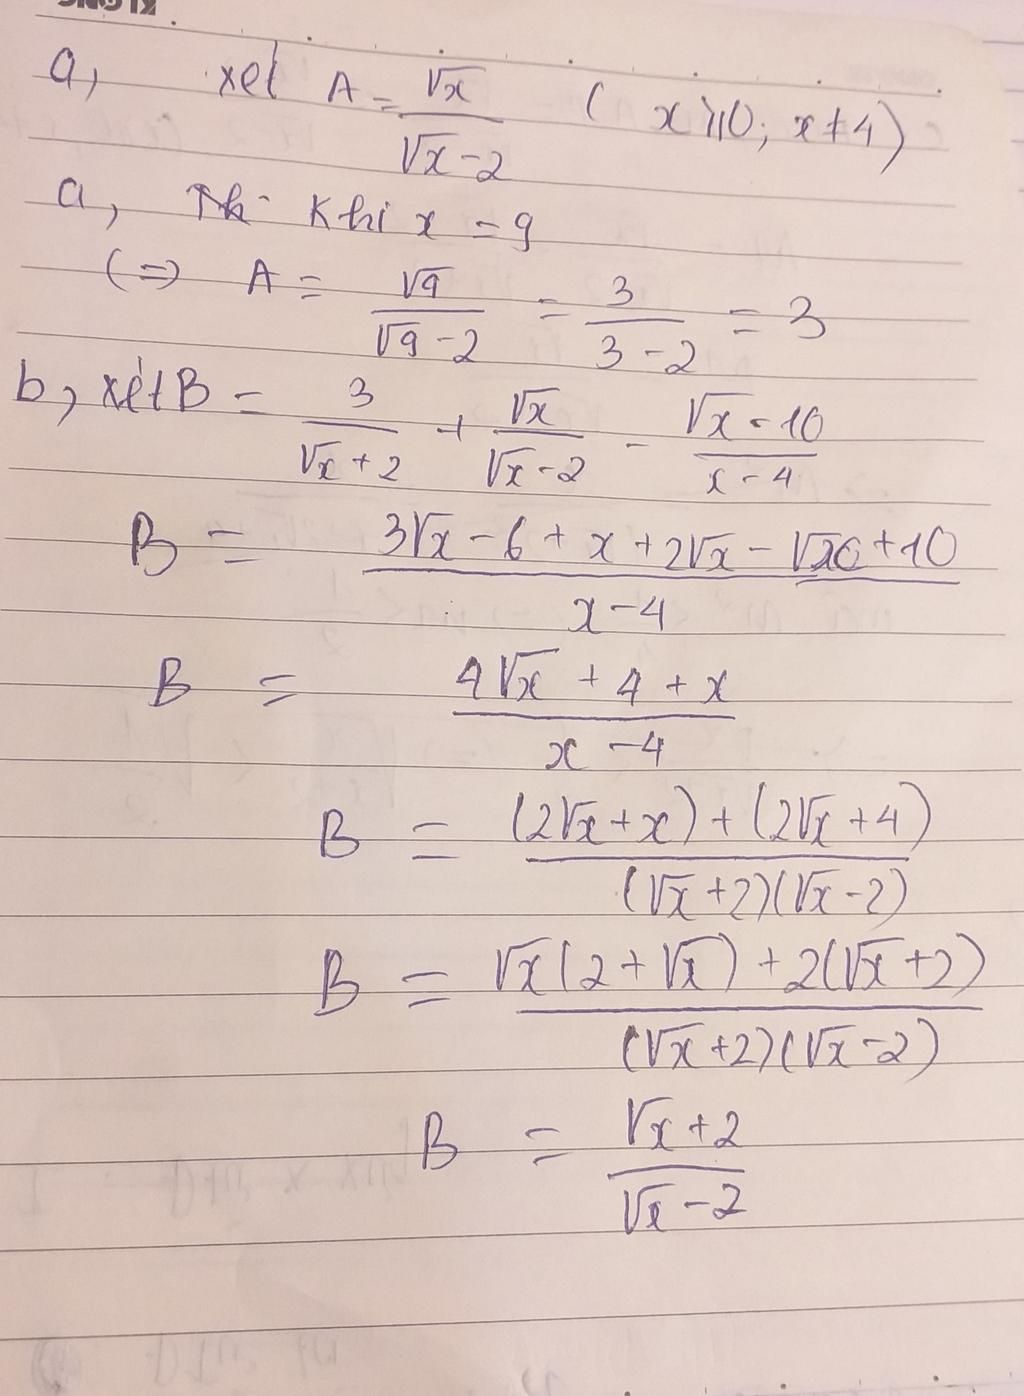 a, xét A = √x / (√x - 2) ( x ≥ 0; x ≠ 4)
a, Khi x = 9
(=) A = √9 / (√9 - 2) = 3 / (3 - 2) = 3
b, xét B = 3 / (√x + 2) + √x / (√x - 2) - (√x - 10) / (x - 4)
B = (3√x - 6 + x + 2√x - √x + 10) / (x - 4)
B = (4√x + 4 + x) / (x - 4)
B = ((2√x + x) + (2√x + 4)) / ((√x + 2)(√x - 2))
B = (√x(2 + √x) + 2(√x + 2)) / ((√x + 2)(√x - 2))
B = (√x + 2) / (√x - 2)